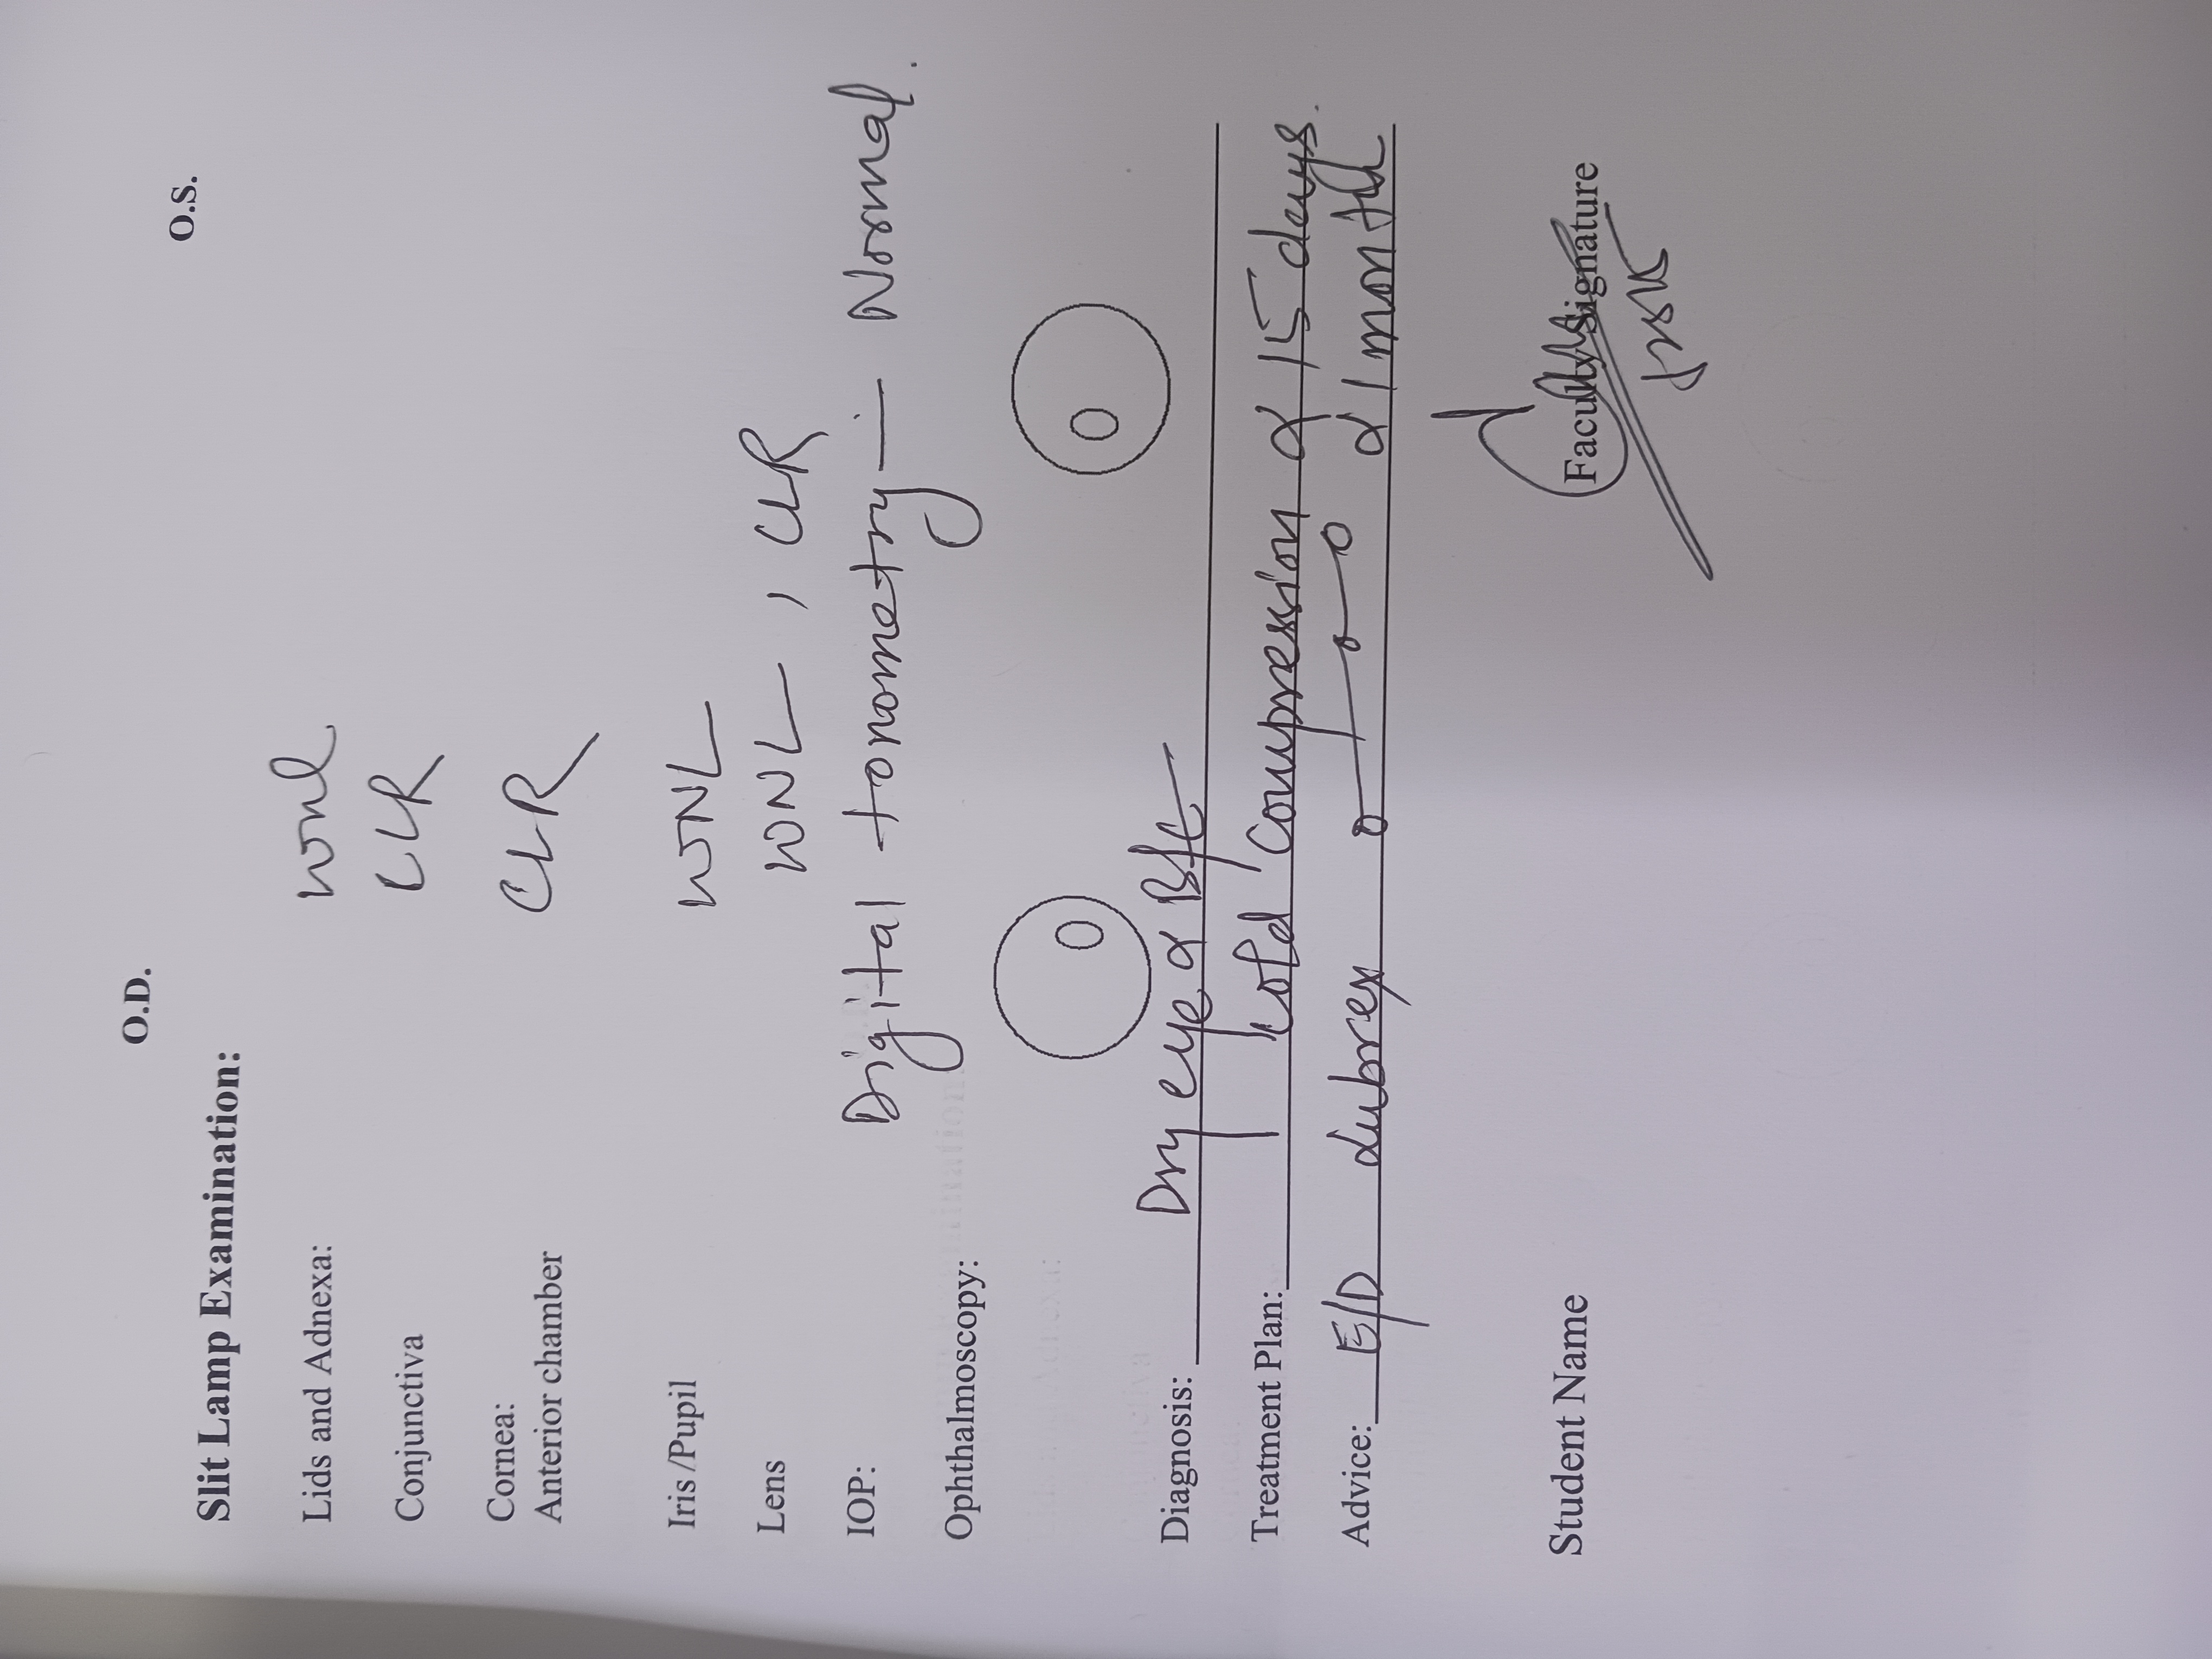 O.D. O.S.
Slit Lamp Examination:
Lids and Adnexa: wnl
Conjunctiva CLR
Cornea:
Anterior chamber CLR
Iris /Pupil WNL
Lens WNL, CLR
IOP: Digital tonometry — Normal.
Ophthalmoscopy:
Diagnosis: Dry eye
Treatment Plan: Cold Compression 15 days.
Advice: E/D Lubrex 1 month
Student Name Faculty Signature